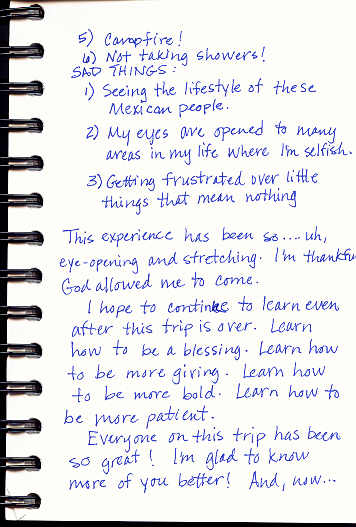 5) Campfire!
6) Not taking showers!
SAD THINGS:
1) Seeing the lifestyle of these
Mexican people.
2) My eyes are opened to many
areas in my life where I'm selfish.
3) Getting frustrated over little
things that mean nothing
This experience has been so.... uh,
eye-opening and stretching. I'm thankful
God allowed me to come.
I hope to continue to learn even
after this trip is over. Learn
how to be a blessing. Learn how
to be more giving. Learn how
to be more bold. Learn how to
be more patient.
Everyone on this trip has been
so great! I'm glad to know
more of you better! And, now...